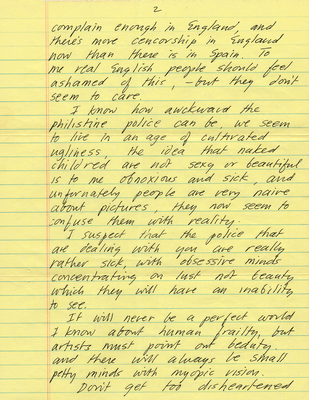 2
complain enough in England, and
there's more cencorship in England
now than there is in Spain. To
me real English people should feel
ashamed of this, – but they don't
seem to care.
I know how awckward the
philistine police can be, we seem
to live in an age of cultivated
ugliness, the idea that naked
childred are not sexy or beautiful
is to me obnoxious and sick and
unfornately people are very naive
about pictures, they now seem to
confuse them with reality.
I suspect that the police that
are dealing with you are really
rather sick, with obsessive minds
concentrating on lust not beauty
which they will have an inability
to see.
It will never be a perfect world
I know about human frailty, but
artists must point out beauty.
and there will always be small
petty minds with myopic vision.
Don't get too disheartened